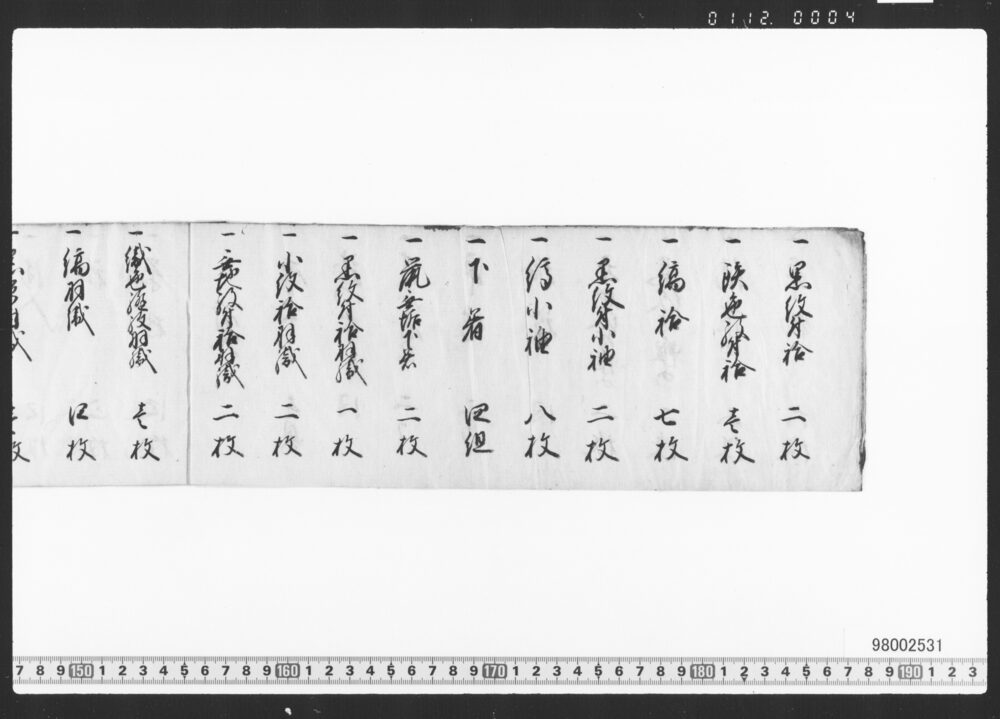 01.12. 0004
一 黒紋付袷 二枚
一 色紋付袷 壱枚
一 縞袷 七枚
一 黒紋付小袖 二枚
一 縞小袖 八枚
一 下着 四組
一 鼠無垢下着 二枚
一 黒紋付袷羽織 一枚
一 小紋袷羽織 二枚
一 紋付袷羽織 二枚
一 羽織 壱枚
一 縞羽織 四枚
一 羽織 枚
98002531
7 8 9 150 1 2 3 4 5 6 7 8 9 160 1 2 3 4 5 6 7 8 9 170 1 2 3 4 5 6 7 8 9 180 1 2 3 4 5 6 7 8 9 190 1 2 3